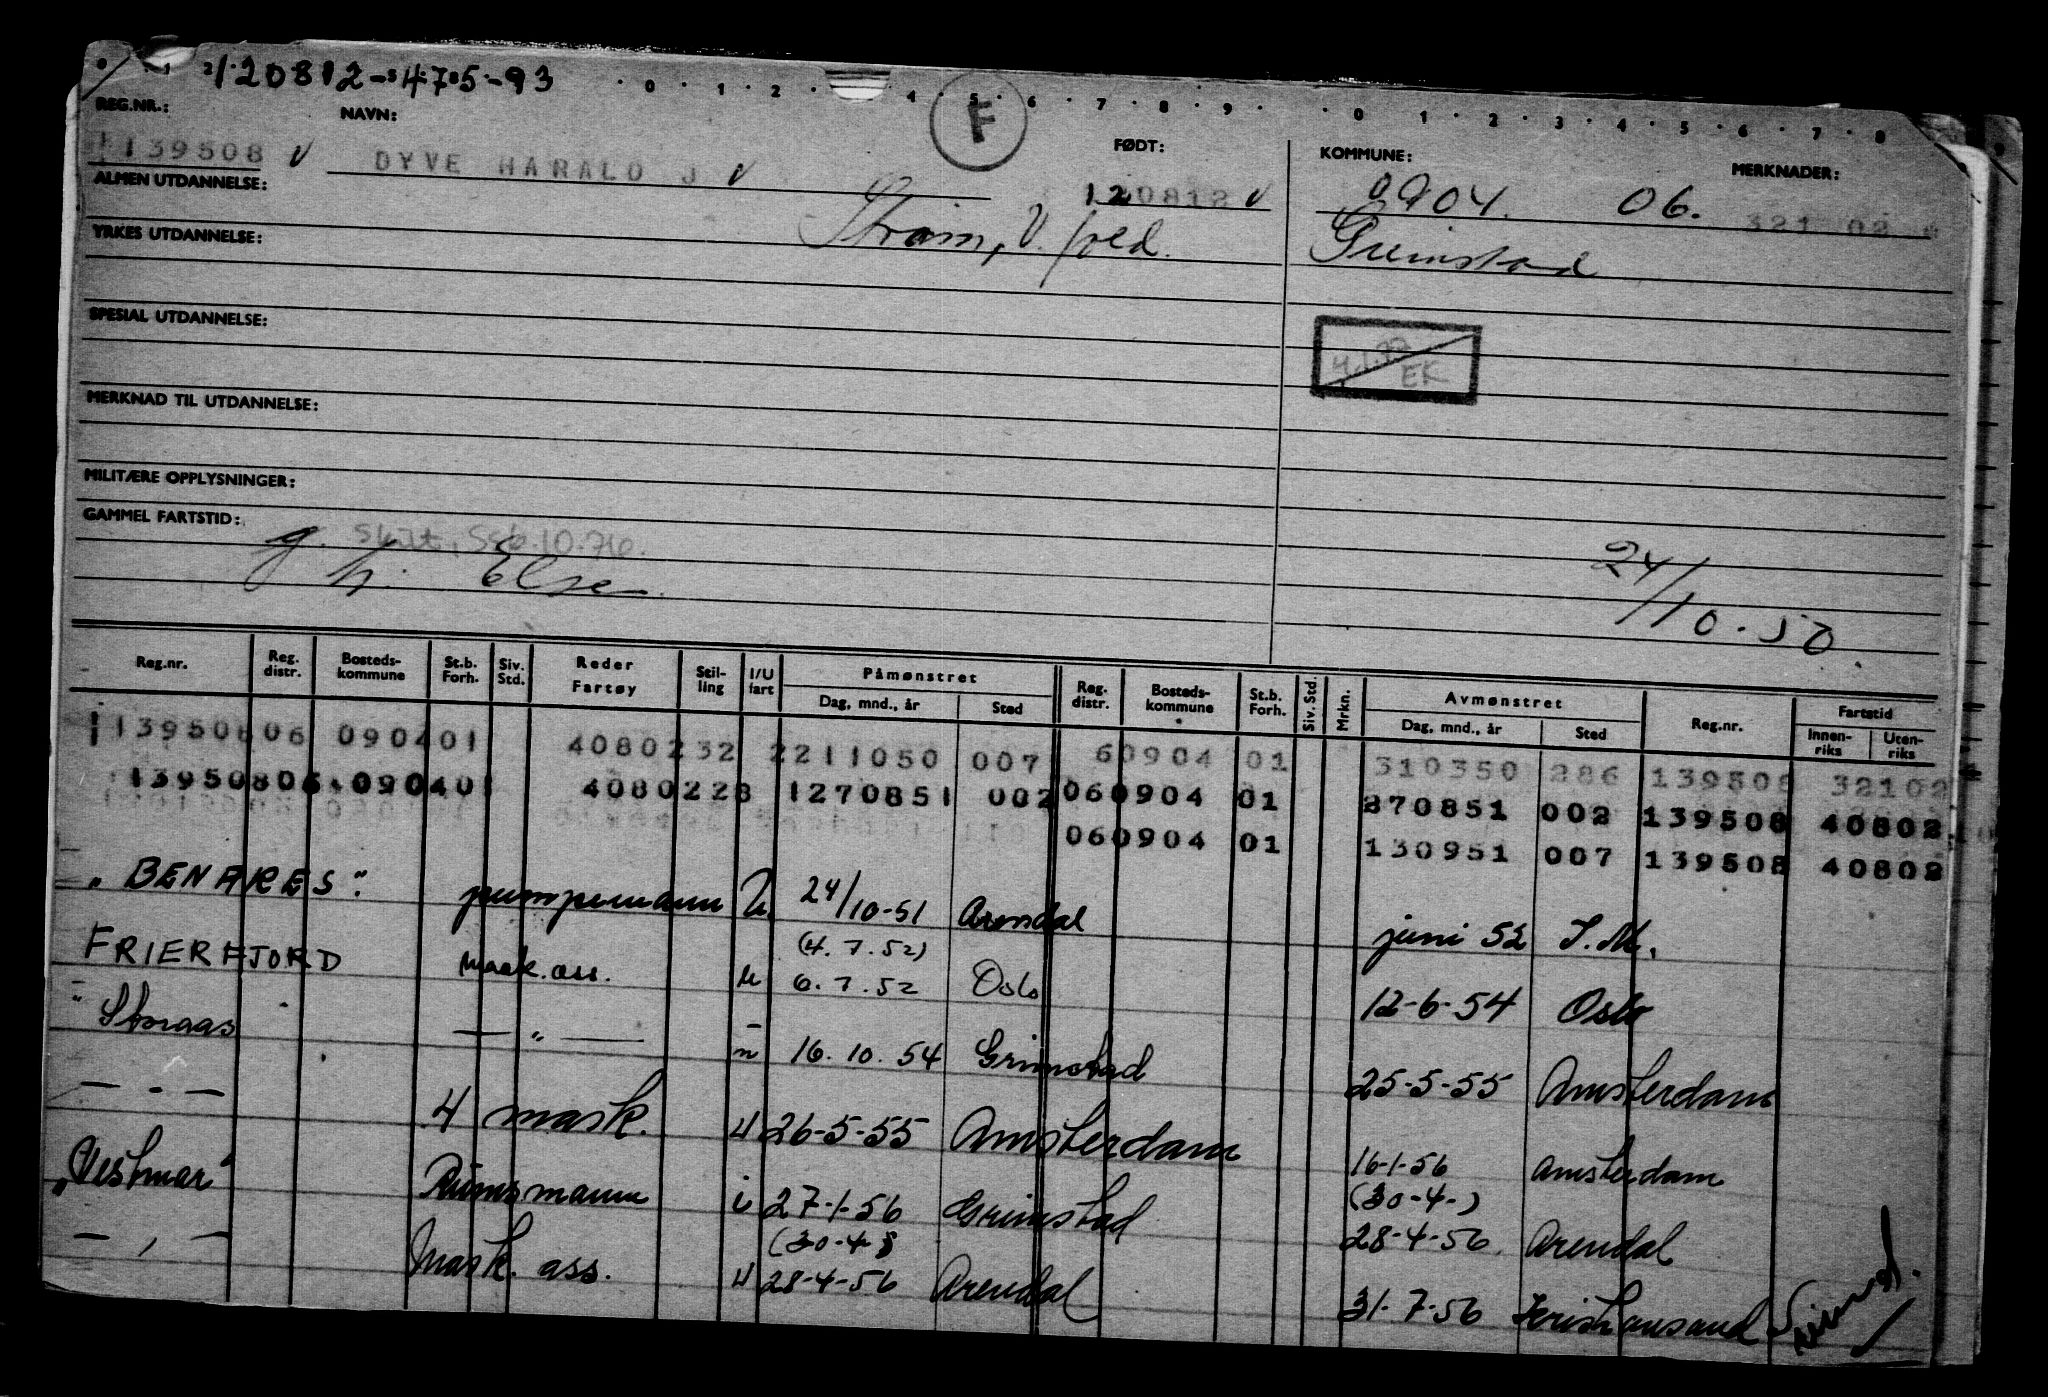 120812-475-93
F
REG.NR.: NAVN: FØDT: KOMMUNE: MERKNADER:
139508 v DYVE HARALD J v 120812 v 0904. 06. 321 02
ALMEN UTDANNELSE:
Strøm, V. fold. Grimstad
YRKES UTDANNELSE:
SPESIAL UTDANNELSE:
EK
MERKNAD TIL UTDANNELSE:
MILITÆRE OPPLYSNINGER:
GAMMEL FARTSTID:
g. h. Else 24/10-50
Reg.nr. Reg. distr. Bosteds-kommune St.b. Forh. Siv. Std. Reder Fartøy Stil-ling I/U fart Påmønstret Dag, mnd., år Sted Reg. distr. Bosteds-kommune St.b. Forh. Siv. Std. Mrkn. Avmønstret Dag, mnd., år Sted Reg.nr. Fartstid Innen-riks Uten-riks
139508 06 0904 01 4080232 2211050 007 60904 01 310350 286 139508 32102
139508 06 0904 01 4080228 1270851 002 060904 01 270851 002 139508 40802
060904 01 130951 007 139508 40802
"BENARES". pumpemann U 24/10-51 Arendal juni 52 I.M.
(4.7.52)
FRIERFJORD mask. ass. u 6.7.52 Oslo 12-6-54 Oslo
" Storaas — " — u 16.10.54 Grimstad 25-5-55 Amsterdam
— " — 4 mask. u 26-5-55 Amsterdam 16-1-56 Amsterdam
"Vestmar" Rumsmann i 27-1-56 Grimstad (30-4-) 28-4-56 Arendal
(30-4-)
— " — Mask. ass. u 28-4-56 Arendal 31-7-56 Kristiansand